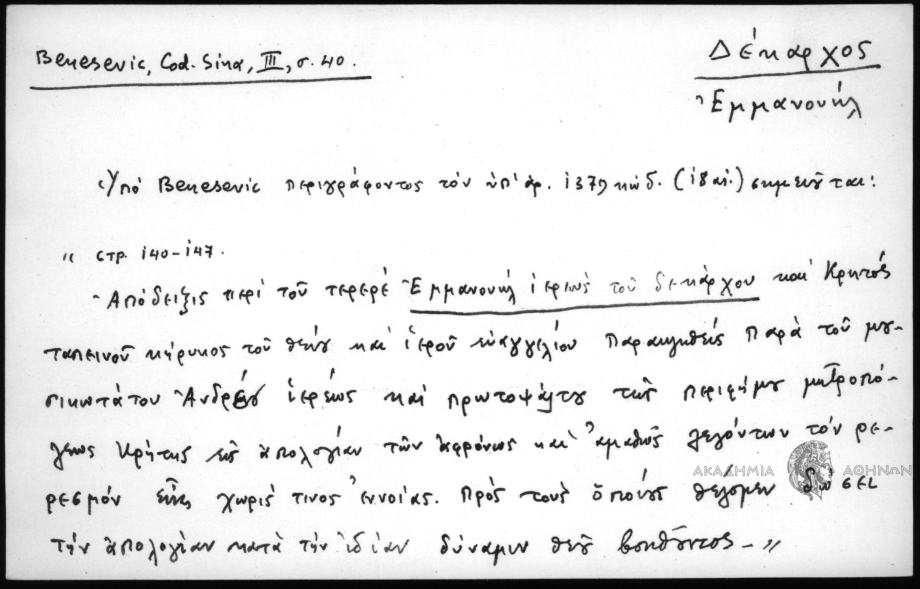 Benesevic, Cod. Sina, III, σ. 40.
Δέκαρχος
Ἐμμανουήλ
Ὑπό Benesevic περιγράφοντος τόν ὑπ' ἀρ. 1379 κώδ. (18 αἰ.) σημειοῦται:
" στρ. 140-147.
Ἀπόδειξις περί τοῦ τερερέ Ἐμμανουήλ ἱερέως τοῦ δεκάρχου καί Κρητός
ταπεινοῦ κήρυκος τοῦ θείου καί ἱεροῦ εὐαγγελίου παρακληθείς παρά τοῦ μου-
σικωτάτου Ἀνδρέου ἱερέως καί πρωτοψάλτου τῆς περιφήμου μητροπό-
λεως Κρήτης εἰς ἀπολογίαν τῶν ἀφρόνως καί ἀμαθῶς λεγόντων τόν ρε-
ρεσμόν εἶναι χωρίς τινος ἐννοίας. Πρός τούς ὁποίους θέλομεν δώσει
τήν ἀπολογίαν κατά τήν ἰδίαν δύναμιν θεοῦ βοηθοῦντος - "
ΑΚΑΔΗΜΙΑ ΑΘΗΝΩΝ